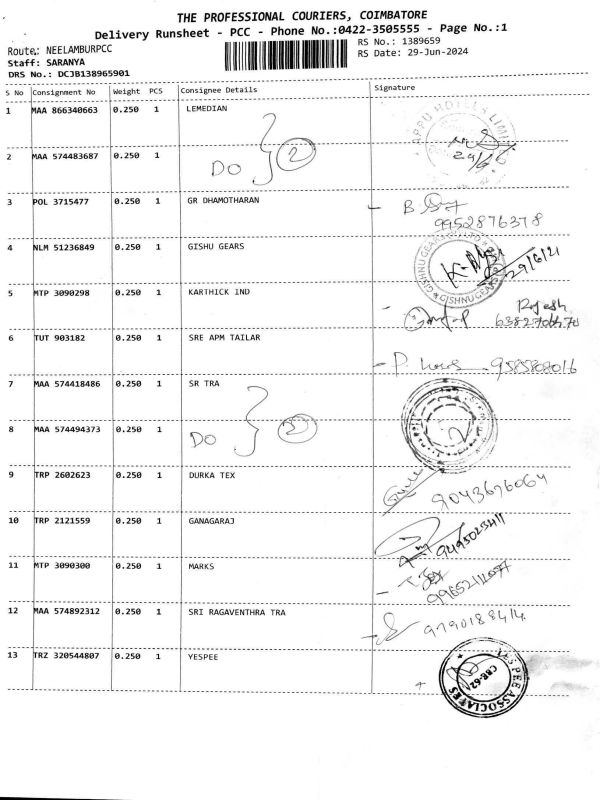 THE PROFESSIONAL COURIERS, COIMBATORE
Delivery Runsheet - PCC - Phone No.:0422-3505555 - Page No.:1
Route.: NEELAMBURPCC RS No.: 1389659
Staff: SARANYA RS Date: 29-Jun-2024
DRS No.: DCJB138965901
S No Consignment No Weight PCS Consignee Details Signature
1 MAA 866340663 0.250 1 LEMEDIAN
2 MAA 574483687 0.250 1 DO 2
3 POL 3715477 0.250 1 GR DHAMOTHARAN
9952876378
4 NLM 51236849 0.250 1 GISHU GEARS
5 MTP 3090298 0.250 1 KARTHICK IND Rajesh
6 TUT 903182 0.250 1 SRE APM TAILAR
7 MAA 574418486 0.250 1 SR TRA
8 MAA 574494373 0.250 1 DO 2
9 TRP 2602623 0.250 1 DURKA TEX
9043676064
10 TRP 2121559 0.250 1 GANAGARAJ
11 MTP 3090300 0.250 1 MARKS
12 MAA 574892312 0.250 1 SRI RAGAVENTHRA TRA
13 TRZ 320544807 0.250 1 YESPEE YES PEE ASSOCIATES
CBE-62